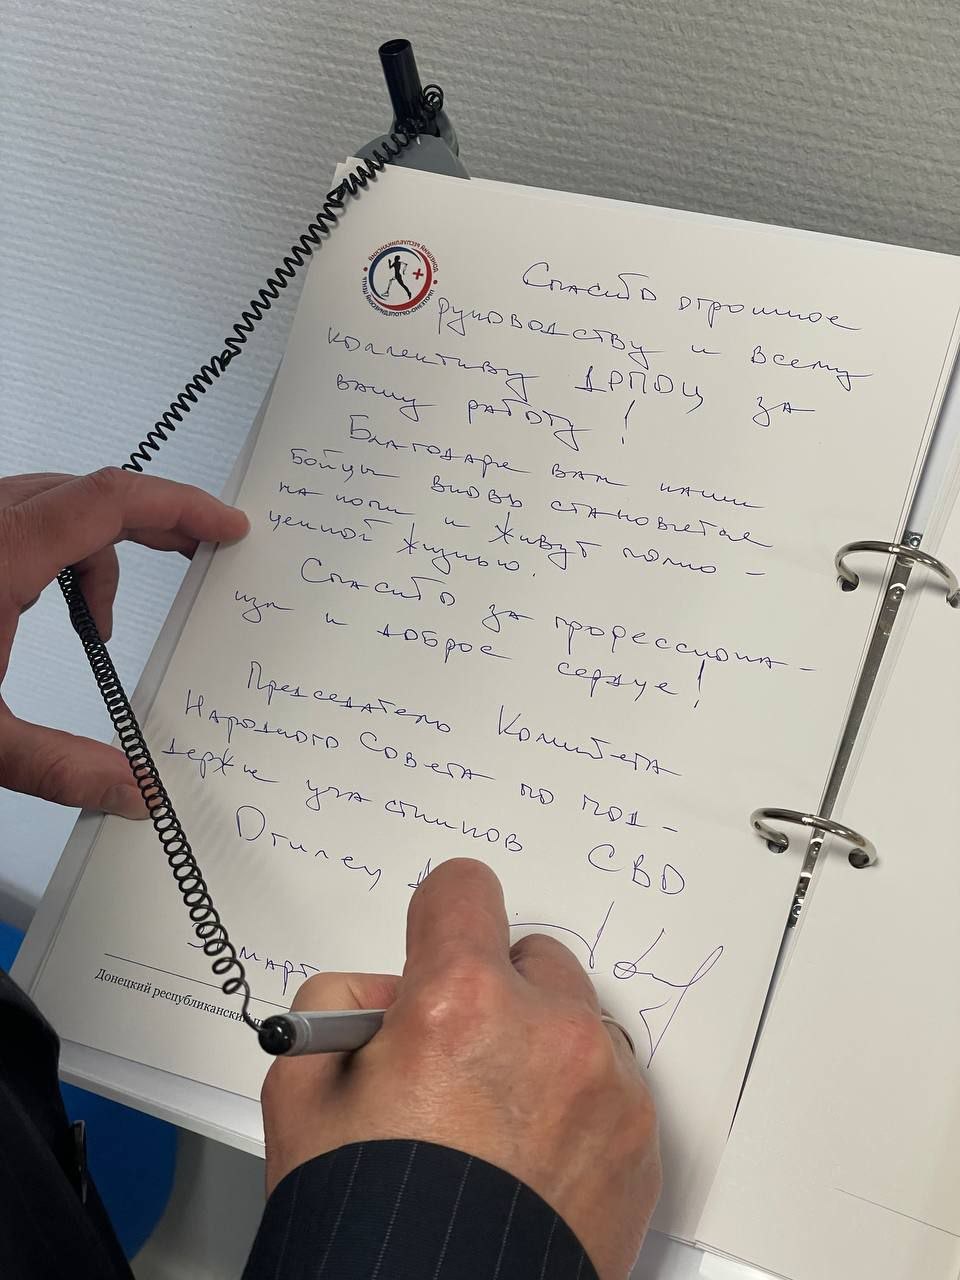 ДОНЕЦКИЙ РЕСПУБЛИКАНСКИЙ
ПРОТЕЗНО-ОРТОПЕДИЧЕСКИЙ ЦЕНТР
Спасибо огромное
руководству и всему
коллективу ДРПОЦ за
вашу работу!
Благодаря вам наши
бойцы вновь становятся
на ноги и живут полно-
ценной жизнью.
Спасибо за профессиона-
изм и доброе сердце!
Председатель Комитета
Народного Совета по под-
держке участников СВО
март
Донецкий республиканский